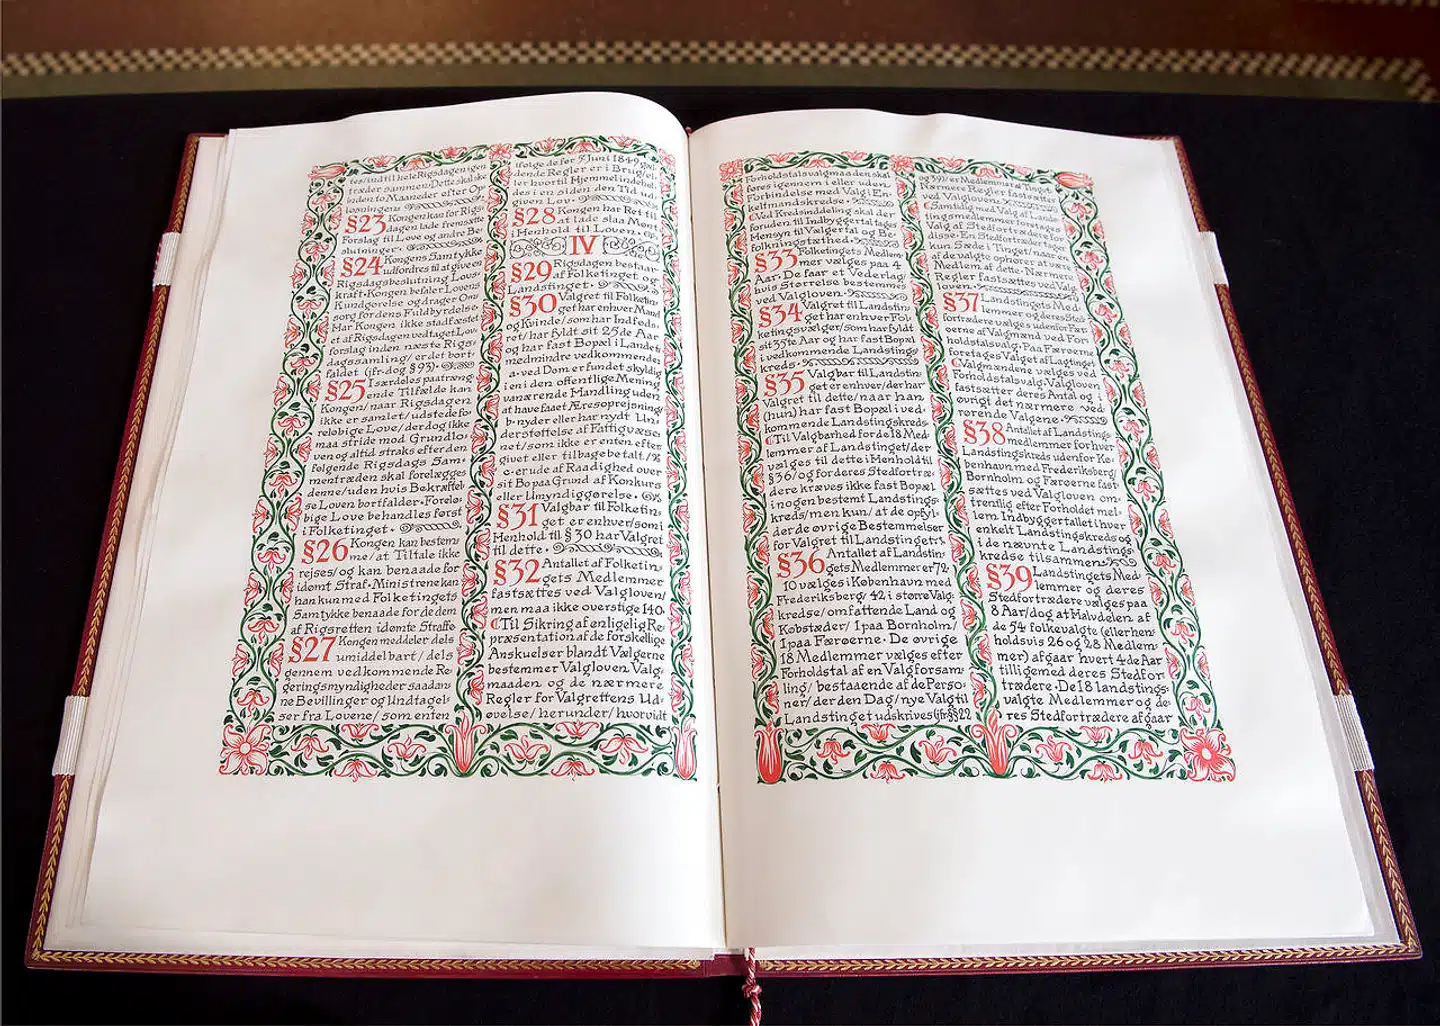 tes/indtil hele Rigsdagen igen
træder sammen. Dette skal ske
inden to Maaneder efter Op
løsningen.
§23 Kongen kan for Rigs
dagen lade fremsætte
Forslag til Love og andre Be
slutninger.
§24 Kongens Samtykke
udfordres til at give en
Rigsdagsbeslutning Lovs-
kraft. Kongen befaler Lovens
Kundgørelse og drager Om
sorg for dens Fuldbyrdelse.
Har Kongen ikke stadfæstet
et af Rigsdagen vedtaget Lov
forslag inden næste Rigs-
dagssamling/ er det bort
faldet (jfr. dog §93).
§25 I særdeles paatræng
ende Tilfælde kan
Kongen/ naar Rigsdagen
ikke er samlet/ udstede fo
reløbige Love/ der dog ikke
maa stride mod Grundlo
ven og altid straks efter den
følgende Rigsdags Sam
mentræden skal forelægges
denne/ uden hvis Bekræftel
se Loven bortfalder. Forelø-
bige Love behandles først
i Folketinget.
§26 Kongen kan bestem
me/ at Tiltale ikke
rejses/ og kan benaade for
idømt Straf. Ministrene kan
han kun med Folketingets
Samtykke benaade for de dem
af Rigsretten idømte Straffe.
§27 Kongen meddeler dels
umiddelbart/ dels
gennem vedkommende Re
geringsmyndigheder saadan
ne Bevillinger og Undtagel
ser fra Lovene/ som enten
ifølge de før 5. Juni 1849 gæl
dende Regler er i Brug/ el
ler hvortil Hjemmel indehol
des i en siden den Tid ud
given Lov.
§28 Kongen har Ret til
at lade slaa Mønt
i Henhold til Loven.
IV
§29 Rigsdagen bestaar
af Folketinget og
Landstinget.
§30 Valgret til Folketin
get har enhver Mand
og Kvinde/ som har Indføds
ret/ har fyldt sit 25de Aar
og har fast Bopæl i Landet
medmindre vedkommende
a. ved Dom er fundet skyldig
i en i den offentlige Mening
vanærende Handling uden
at have faaet Æresoprejsning/
b. nyder eller har nydt Un
derstøttelse af Fattigvæse
net/ som ikke er enten efter
givet eller tilbagebetalt/
c. er ude af Raadighed over
sit Bo paa Grund af Konkurs
eller Umyndiggørelse.
§31 Valgbar til Folketin
get er enhver/ som i
Henhold til §30 har Valgret
til dette.
§32 Antallet af Folketin
gets Medlemmer
fastsættes ved Valgloven/
men maa ikke overstige 140.
Til Sikring af en ligelig Re
præsentation af de forskellige
Anskuelser blandt Vælgerne
bestemmer Valgloven Valg-
maaden og de nærmere
Regler for Valgrettens Ud
øvelse/ herunder/ hvorvidt
Forholdstalsvalgmaaden skal
føres igennem i eller uden
Forbindelse med Valg i En-
keltmandskredse.
Ved Kredsinddeling skal der
foruden til Indbyggertal tages
Hensyn til Vælgertal og Be-
folkningstæthed.
§33 Folketingets Medlem
mer vælges paa 4
Aar. De faar et Vederlag/
hvis Størrelse bestemmes
ved Valgloven.
§34 Valgret til Landstin
get har enhver Fol
ketingsvælger/ som har fyldt
sit 35te Aar og har fast Bopæl
i vedkommende Landstings
kreds.
§35 Valgbar til Landstin
get er enhver/ der har
Valgret til dette/ naar han
(hun) har fast Bopæl i ved-
kommende Landstingskreds.
Til Valgbarhed for de 18 Med
lemmer af Landstinget/ der
vælges til dette i Henhold til
§36/ og for deres Stedfortræ
dere kræves ikke fast Bopæl
i nogen bestemt Landstings
kreds/ men kun/ at de opfyl
der de øvrige Bestemmelser
for Valgret til Landstinget.
§36 Antallet af Landstin
gets Medlemmer er 72.
10 vælges i København med
Frederiksberg/ 42 i større Valg
kredse/ omfattende Land og
Købstæder/ 1 paa Bornholm/
1 paa Færøerne. De øvrige
18 Medlemmer vælges efter
Forholdstal af en Valgforsam
ling/ bestaaende af de Perso
ner/ der den Dag/ nye Valg til
Landstinget udskrives (jfr. §§ 22
og 39)/ er Medlemmer af Tinget.
Nærmere Regler fastsættes
ved Valgloven.
Samtidig med Valg af Lands
tingsmedlemmer foretages
Valg af Stedfortrædere for
disse. En Stedfortræder tager
kun Sæde i Tinget/ naar
de valgte ophører at være
Medlem af dette. Nærmere
Regler fastsættes ved Valg
loven.
§37 Landstingets Med
lemmer og deres Sted
fortrædere vælges udenfor Fær
øerne af Valgmænd ved For
holdstalsvalg. Paa Færøerne
foretages Valget af Lagtinget.
Valgmændene vælges ved
Forholdstalsvalg. Valgloven
fastsætter deres Antal og i
øvrigt det nærmere ved
rørende Valgene.
§38 Antallet af Landstings
medlemmer for hver
Landstingskreds udenfor Kø
benhavn med Frederiksberg/
Bornholm og Færøerne fast
sættes ved Valgloven om-
trentlig efter Forholdet mel-
lem Indbyggertallet i hver
enkelt Landstingskreds og
i de nævnte Landstings-
kredse tilsammen.
§39 Landstingets Med
lemmer og deres
Stedfortrædere vælges paa
8 Aar/ dog at Halvdelen af
de 54 folkevalgte (eller hen
holdsvis 26 og 28 Medlem-
mer) afgaar hvert 4de Aar
tilligemed deres Stedfor
trædere. De 18 landstings-
valgte Medlemmer og de-
res Stedfortrædere afgaar